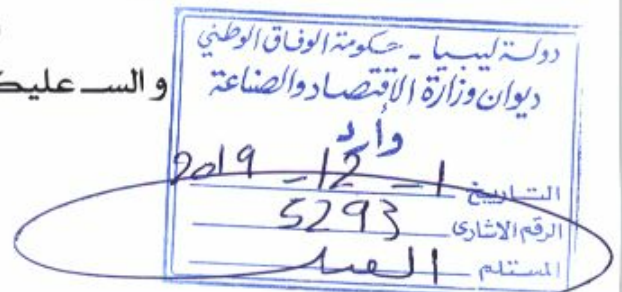 والسـ عليك
دولة ليبيا - حكومة الوفاق الوطني
ديوان وزارة الإقتصاد والصناعة
وارد
التاريخ 1 - 12 - 2019
الرقم الاشارى 5293
المستلم